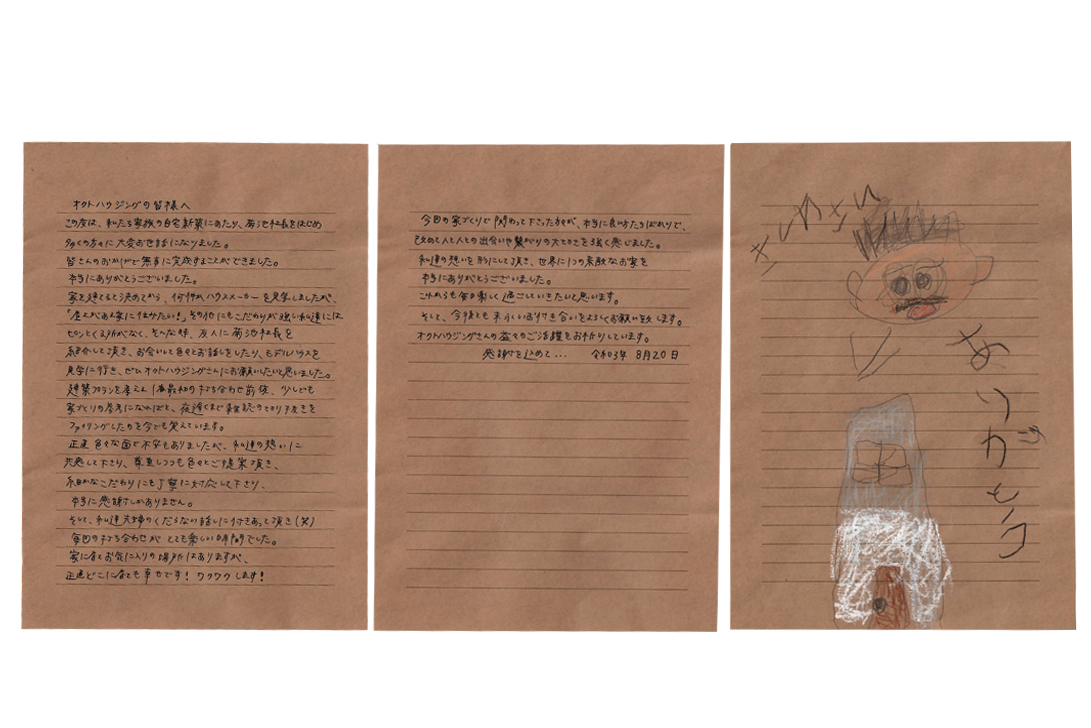 オクトハウジングの皆様へ
この度は、私たち家族の自宅新築にあたり、菊池社長をはじめ
多くの方々に大変お世話になりました。
皆さんのおかげで無事に完成することができました。
本当にありがとうございました。
家を建てると決めてから、何件かハウスメーカーを見学しましたが、
その他にもこだわりが強い私達には
ピンとくる所がなく、そんな時、友人に菊池社長を
紹介して頂き、お会いして色々とお話しをしたり、モデルハウスを
見学に行き、ぜひオクトハウジングさんにお願いしたいと思いました。
建築プランを考え、1番最初の打ち合わせ前夜、少しでも
家づくりの参考になればと、夜遅くまで雑誌の切り抜きを
ファイリングしたのを今でも覚えています。
正直色々な面で不安もありましたが、私達の想いに
共感して下さり、尊重しつつも色々とご提案頂き、
細かなこだわりにも丁寧に対応して下さり、
本当に感謝しかありません。
そして、私達夫婦のくだらない話しに付きあって頂き(笑)
毎回の打ち合わせが とても楽しい時間でした。
家に全てお気に入りの場所はありますが、
正直どこに居ても幸せです! ワクワクします!
今回の家づくりで関わって下さった方々が、本当に良い方たちばかりで、
改めて人と人との出会いや繋がりの大切さを強く感じました。
私達の想いを形にして頂き、世界に1つの素敵なお家を
本当にありがとうございました。
これからも毎日楽しく過ごしていきたいと思います。
そして、今後とも末永いお付き合いをよろしくお願い致します。
オクトハウジングさんの益々のご活躍をお祈りしています。
感謝を込めて... 令和3年 8月20日
ありがとう